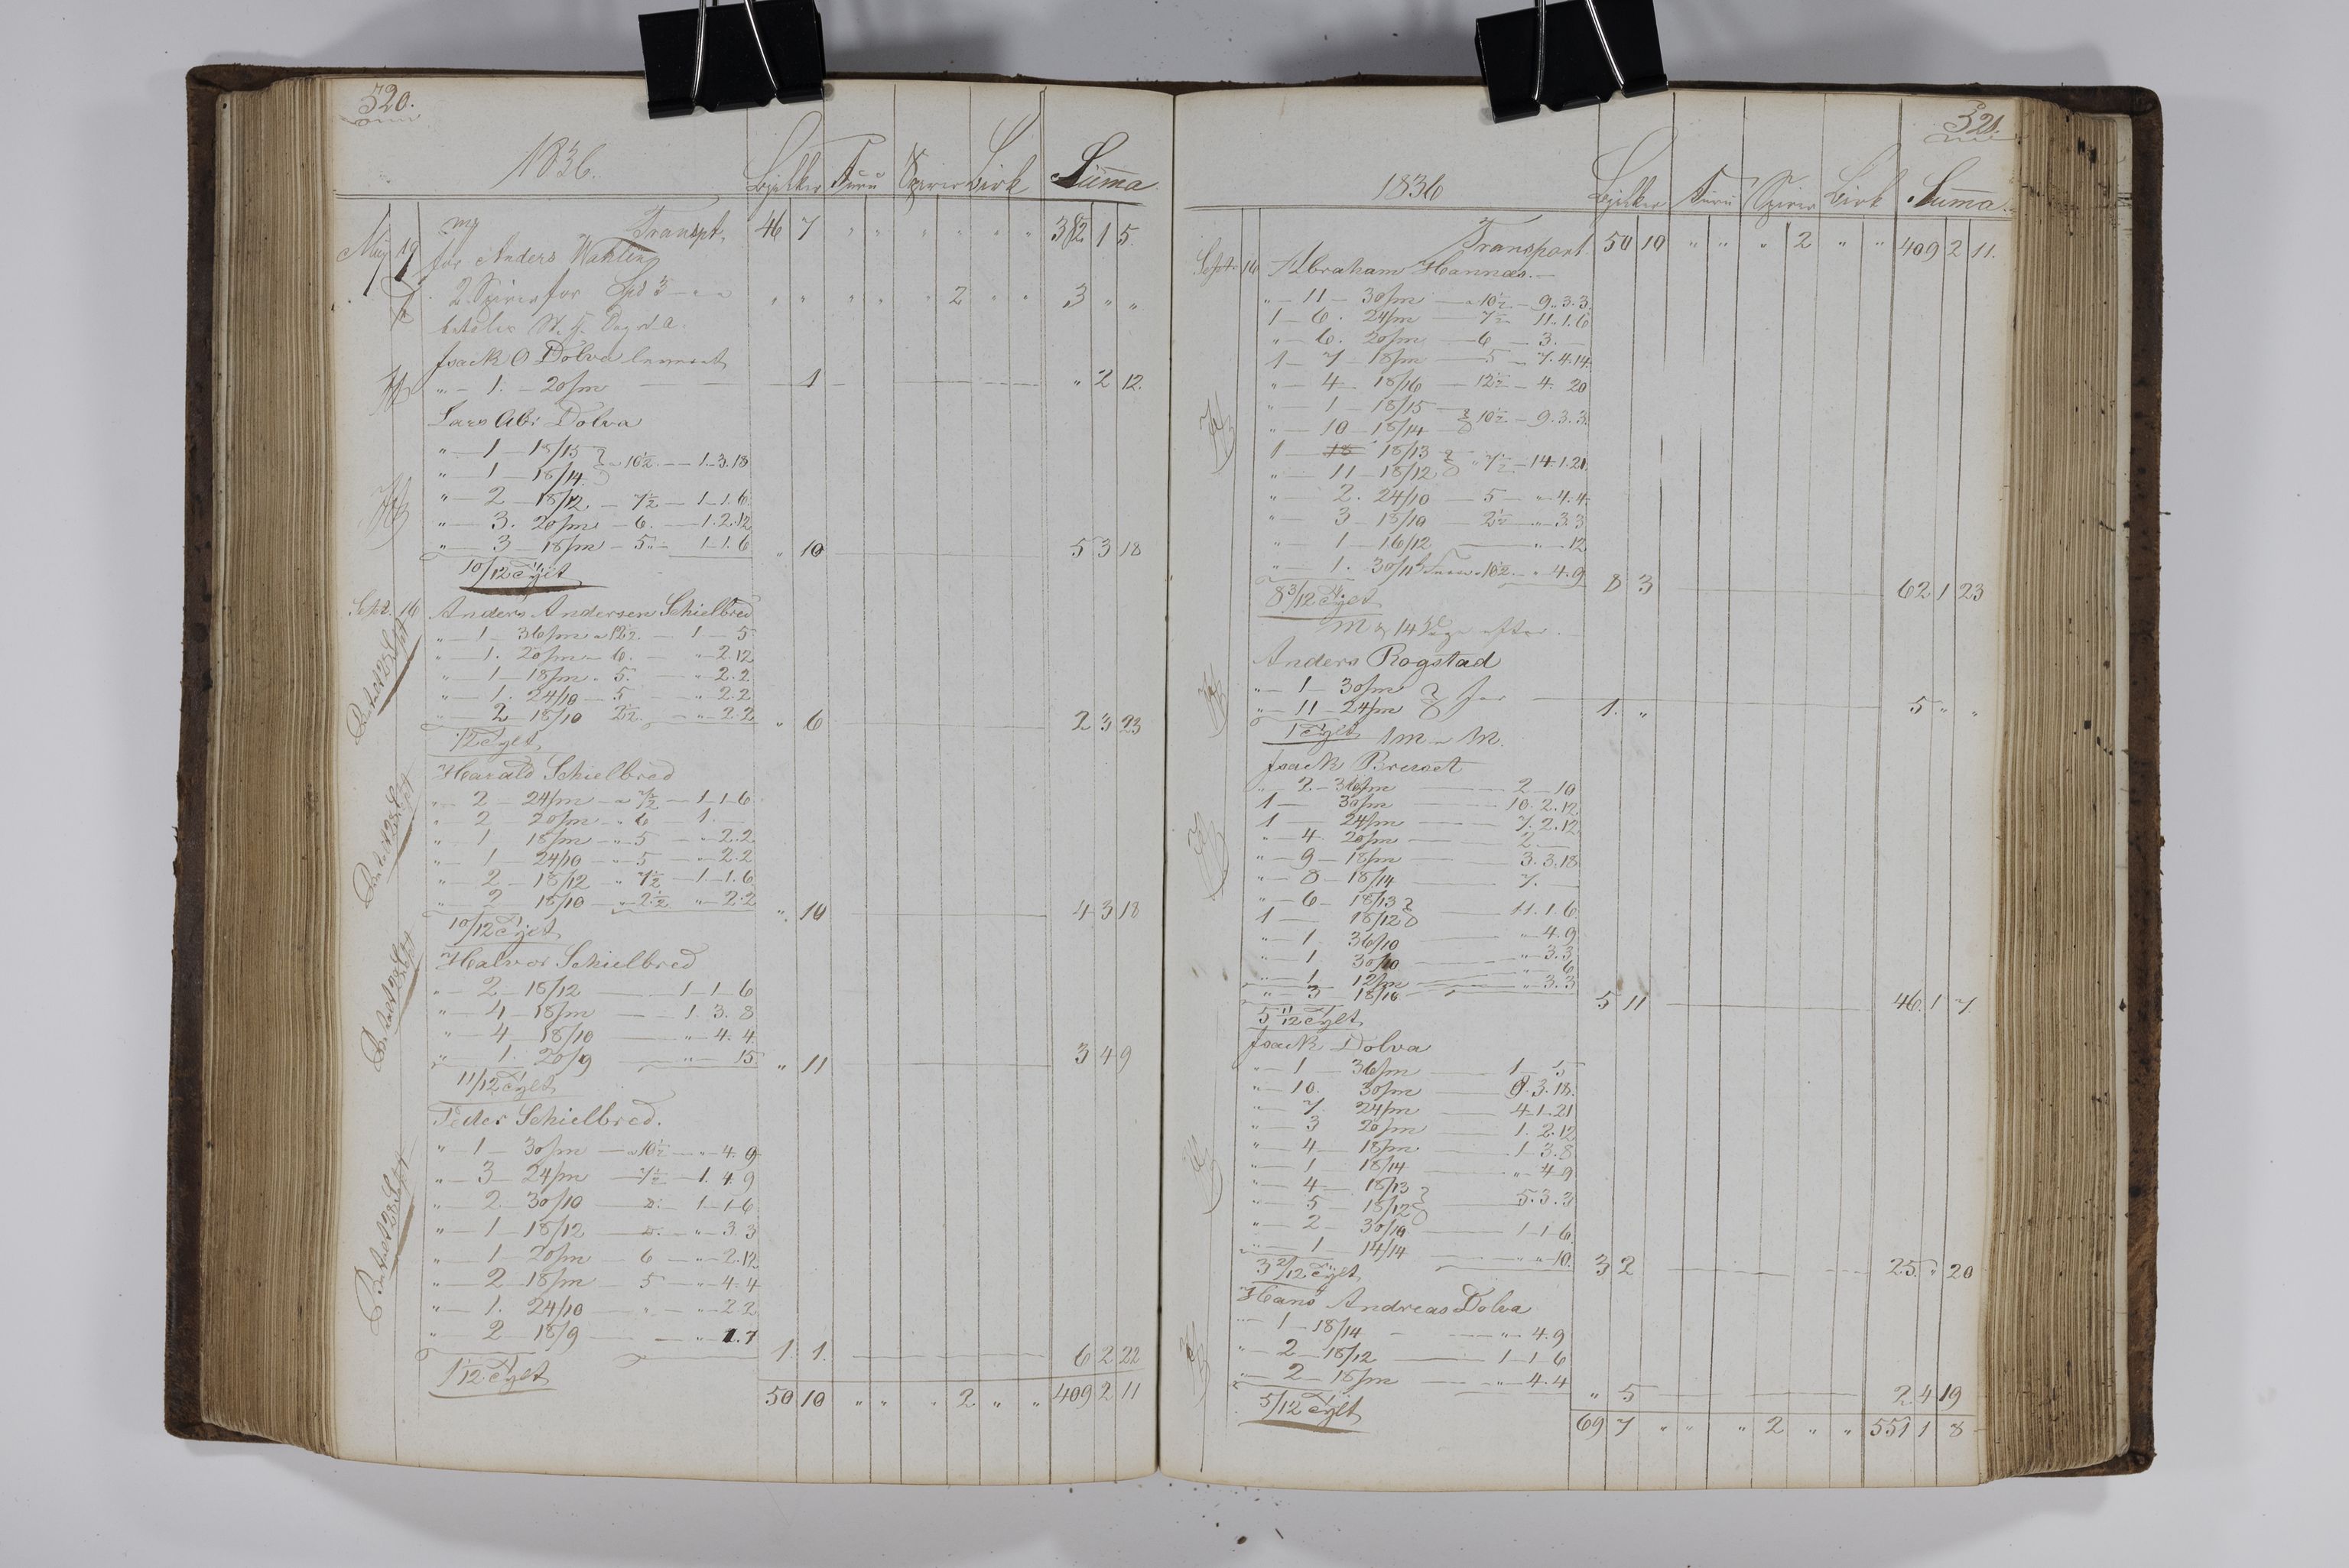 320.
1836. Bjelker Furu Spirer Birk Summa
Transpt. 46 7 " " " " " " 382 1 5.
May 19 for Anders Wahling
2 Spirer for Spd 3 " " " " " " 2 " " 3 " "
betales St. H. Dag d.a.
Isack O Dolva
" – 1. – 20/m 1 " 2 12.
Lars Abr Dolva
" – 1 – 18/15
" – 1 – 18/14 } a 10½ – 1. 3. 18
" – 2 – 18/12 – 7½ – 1. 1. 6
" – 3. 20/m – 6. – 1. 2. 12
" – 3 – 18/m – 5 – 1. 1. 6 " 10 5 3 18
10/12 Tylt
Sept. 16 Anders Andersen Schielbred
" – 1 – 36/m a 12½ – 1 – 5
" – 1. 20/m – 6. – " 2. 12
" – 1 – 18/m " 5. " 2. 2
" – 1. 24/10 – 5 " 2. 2
" – 2 – 18/10 2½ – " 2. 2 " 6 2 3 23
½ Tylt
Betalt 28 Sept
Harald Schielbred
" – 2 – 24/m – a 7½ – 1. 1. 6
" – 2 – 20/m – " 6 – 1. –
" – 1 18/m – " 5 – " 2. 2
" – 1 – 24/10 – " 5 – " 2. 2
" – 2 – 18/12 – " 7½ – 1. 1. 6
" – 2 18/10 – " 2½ – " 2. 2 " 10 4 3 18
10/12 Tylt
Betalt 28 Sept
Halvor Schielbred
" – 2 – 18/12 – 1 – 1 – 6
" – 4 – 18/m – 1. 3. 8
" – 4 – 18/10 – " 4. 4
" – 1. 20/9 – " 15 " 11 3 4 9
11/12 Tylt
Betalt 28 Sept
Peder Schielbred.
" – 1 – 30/m – a 10½ – " 4. 9
" – 3 – 24/m – 7½ – 1. 4. 9
" – 2 – 30/10 – D: – 1. 1. 6
" – 1 – 18/12 – D. – " 3. 3
" – 1 – 20/m – 6 – " 2. 12
" – 2 – 18/m – 5 – " 4. 4
" – 1. 24/10 – " – " 2. 2
" – 2 – 18/9 – " 1. 7 1. 1. 6 2 22
1 1/12 Tylt
Betalt 28 Sept
50 10 " " " 2 " " 409 2 11
321.
1836 Bjelker Furu Spirer Birk Summa
Transport 50 10 " " " 2 " " 409 2 11.
Sept. 16 Abraham Hannæs. –
" – 11 – 30/m – a 10½ – 9. 3. 3
1 – 6. 24/m – 7½ 11. 1. 6
" – 6. 20/m – 6 – 3. –
1 – 7 – 18/m – 5 – 7. 4. 14
" – 4 – 18/16 – 12½ – 4. 20
" – 1 – 18/15
" – 10 – 18/14 } 10½ – 9. 3. 3
1 – 18 18/13
" – 11 – 18/12 } " 7½ – 14. 1. 21
" – 2. 24/10 – 5 – " 4. 4
" – 3 – 18/10 – 2½ – " 3. 3
" – 1 – 16/12 – " – 12
" – 1. 30/11 a 10½ – " 4. 9 8 3 62 1 23
8 3/12 Tylt
14 Dage efter
Anders Rogstad
" – 1 – 30/m
" – 11 – 24/m } for 1. " 5 " "
1 Tylt
Isack Breset
" – 2 – 36/m – 2 – 10
1 – 30/m – 10. 2. 12
1 – 24/m – 7. 2. 12
" – 4. 20/m – 2. –
" – 9 – 18/m – 3. 3. 18
" – 8 – 18/14 – 7. –
" – 6 – 18/13
1 – 18/12 } 11. 1. 6
" – 1. 36/10 – " 4. 9
" – 1. 30/10 – " 3. 3
" – 1. 12/m – " 6
" – 3 18/10 – " 3. 3 5 11 46. 1 7.
5 11/12 Tylt
Isack Dolva
" – 1 – 36/m – 1 – 5
" – 10. 30/m – 8. 3. 18.
" – 7. 24/m – 4. 1. 21
" – 3 20/m – 1. 2. 12
" – 4 – 18/m – 1 – 3. 8
" – 1 – 18/14 – " 4. 9
" – 4 – 18/13
" – 5 – 18/12 } 5. 3. 3
" – 2 – 30/10 – 1 – 1 – 6
" – 1 14/14 – " " 10. 3 2 25. " 20
3 2/12 Tylt
Hans Andreas Dolva
" – 1 – 18/14 – " 4. 9
" – 2 – 18/12 – 1 – 1 – 6
" – 2 – 18/m – " 4. 4 " 5 2 4 19
5/12 Tylt
69 7 " " " 2 " " 551 1 8